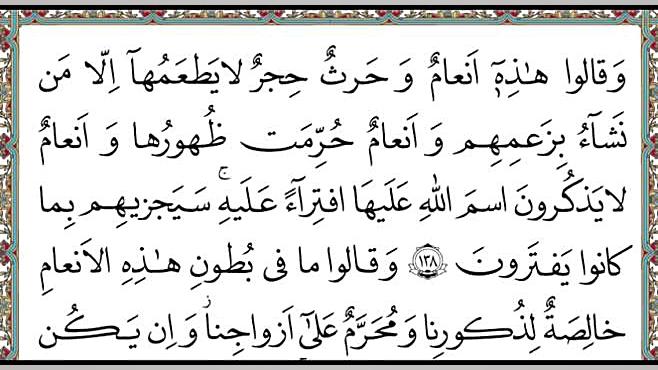 وَقالوا هـٰذِهِٓ اَنعامٌ وَ حَرثٌ حِجرٌ لايَطعَمُهآ اِلّا مَن
نَشَآءُ بِزَعمِهِم وَ اَنعامٌ حُرِّمَت ظُهورُها وَ اَنعامٌ
لايَذكُرونَ اسمَ اللهِ عَلَيهَا افتِرآءً عَلَيهِۚ سَيَجزيهِم بِما
كانوا يَفتَرونَ ﴿١٣٨﴾ وَ قالوا ما فى بُطونِ هـٰذِهِ الاَنعامِ
خالِصَةٌ لِذُكورِنا وَ مُحَرَّمٌ عَلىٰٓ اَزواجِنا وَ اِن يَكُن